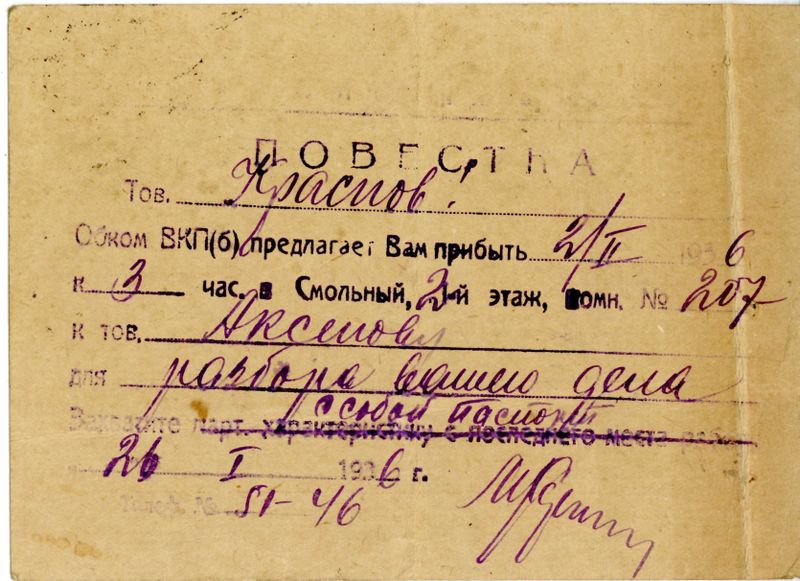 ПОВЕСТКА
Тов. Краснов!
Обком ВКП(б) предлагает Вам прибыть 2/II 1936
к 3 час. в Смольный, 2-й этаж, комн. № 207
к тов. Аксенову
для разбора вашего дела
с собой паспорт
Захватите парт. характеристику с последнего места
26 I 1936 г.
Телеф. № 51-46